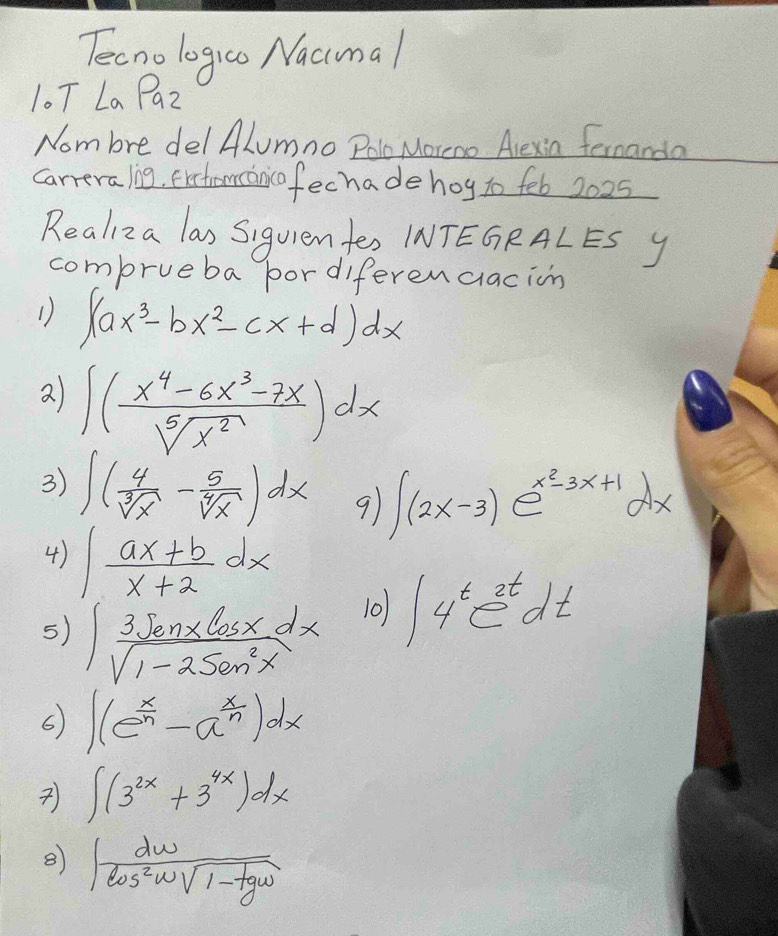 Tecnologico Nacional
I.T La Paz
Nombre del Alumno Polo Moreno Alexia Fernanda
Carrera Ing. Electromcánica fecha de hoy 10 feb 2025
Realiza las Siguientes INTEGRALES y
comprueba por diferenciación
1) ∫(ax³-bx²-cx+d)dx
2) ∫((x⁴-6x³-7x)/⁵√x²)dx
3) ∫(4/³√x - 5/⁴√x)dx
4) ∫ (ax+b)/(x+2) dx
5) ∫ 3Senx Cosx dx/√(1-2Sen²x)
6) ∫(e^(x/n) - a^(x/n))dx
7) ∫(3^(2x) + 3^(4x))dx
8) ∫ dw/(Cos²w√(1-tgw))
9) ∫(2x-3) e^(x²-3x+1) dx
10) ∫4^t e^(2t) dt